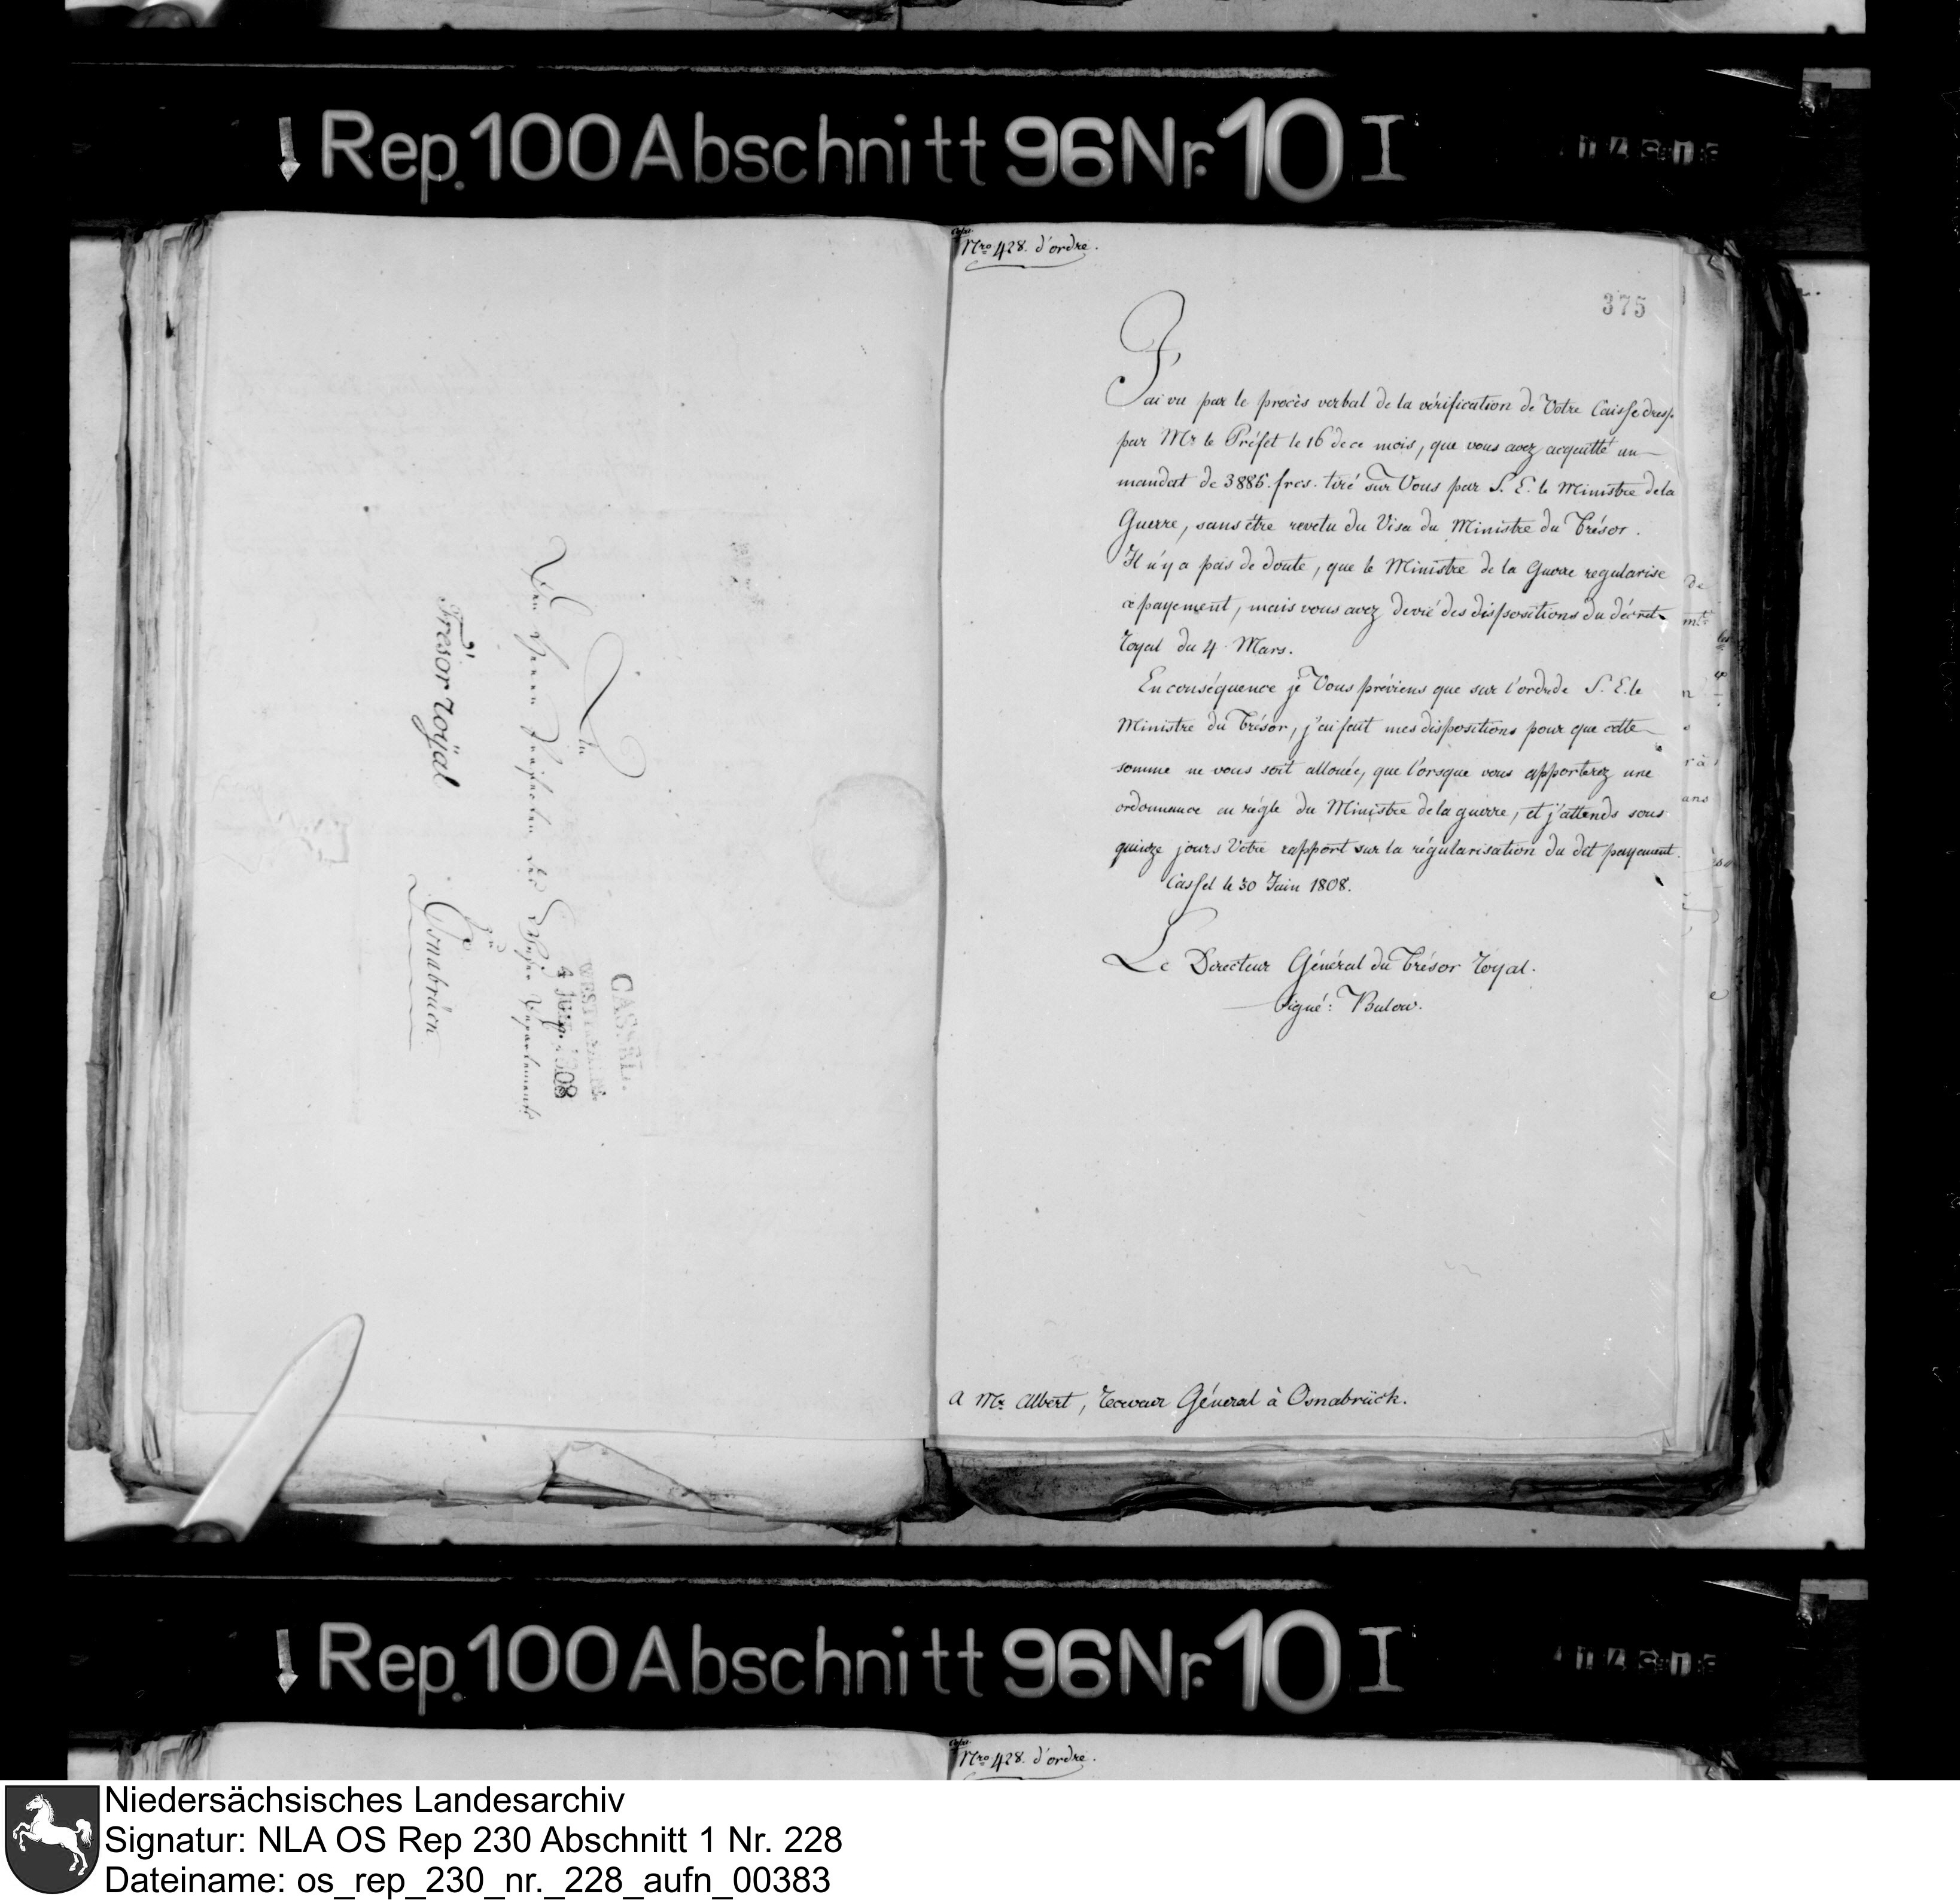 Rep. 100 Abschnitt 96 Nr. 10 I
An
den Herrn Präfecten des Weser Departements
zu
Osnabrück
Trésor royal
CASSEL
WESTPHALEN
4 July 1808
Nro 428. d'ordre.
375
J'ai vu par le procès verbal de la vérification de Votre Caisse dressé
par Mr le Préfet le 16 de ce mois, que vous avez acquitté un
mandat de 3886. frcs. tiré sur Vous par S. E. le Ministre de la
Guerre, sans être revetu du Visa du Ministre du Trésor.
Il n'y a pas de doute, que le Ministre de la Guerre regularise
ce payement, mais vous avez devié des dispositions du décret
royal du 4 Mars.
En conséquence je Vous préviens que sur l'ordre de S. E. le
Ministre du Trésor, j'ai fait mes dispositions pour que cette
somme ne vous soit allouée, que l'orsque vous apporterez une
ordonnance en régle du Ministre de la guerre, et j'attends sous
quinze jours Votre rapport sur la régularisation du dit payement.
Cassel le 30 Juin 1808.
Le Directeur Général du Trésor royal.
Signé: Bulow.
A Mr. Albert, Receveur Général à Osnabrück.
Rep. 100 Abschnitt 96 Nr. 10 I
Nro 428. d'ordre.
Niedersächsisches Landesarchiv
Signatur: NLA OS Rep 230 Abschnitt 1 Nr. 228
Dateiname: os_rep_230_nr._228_aufn_00383